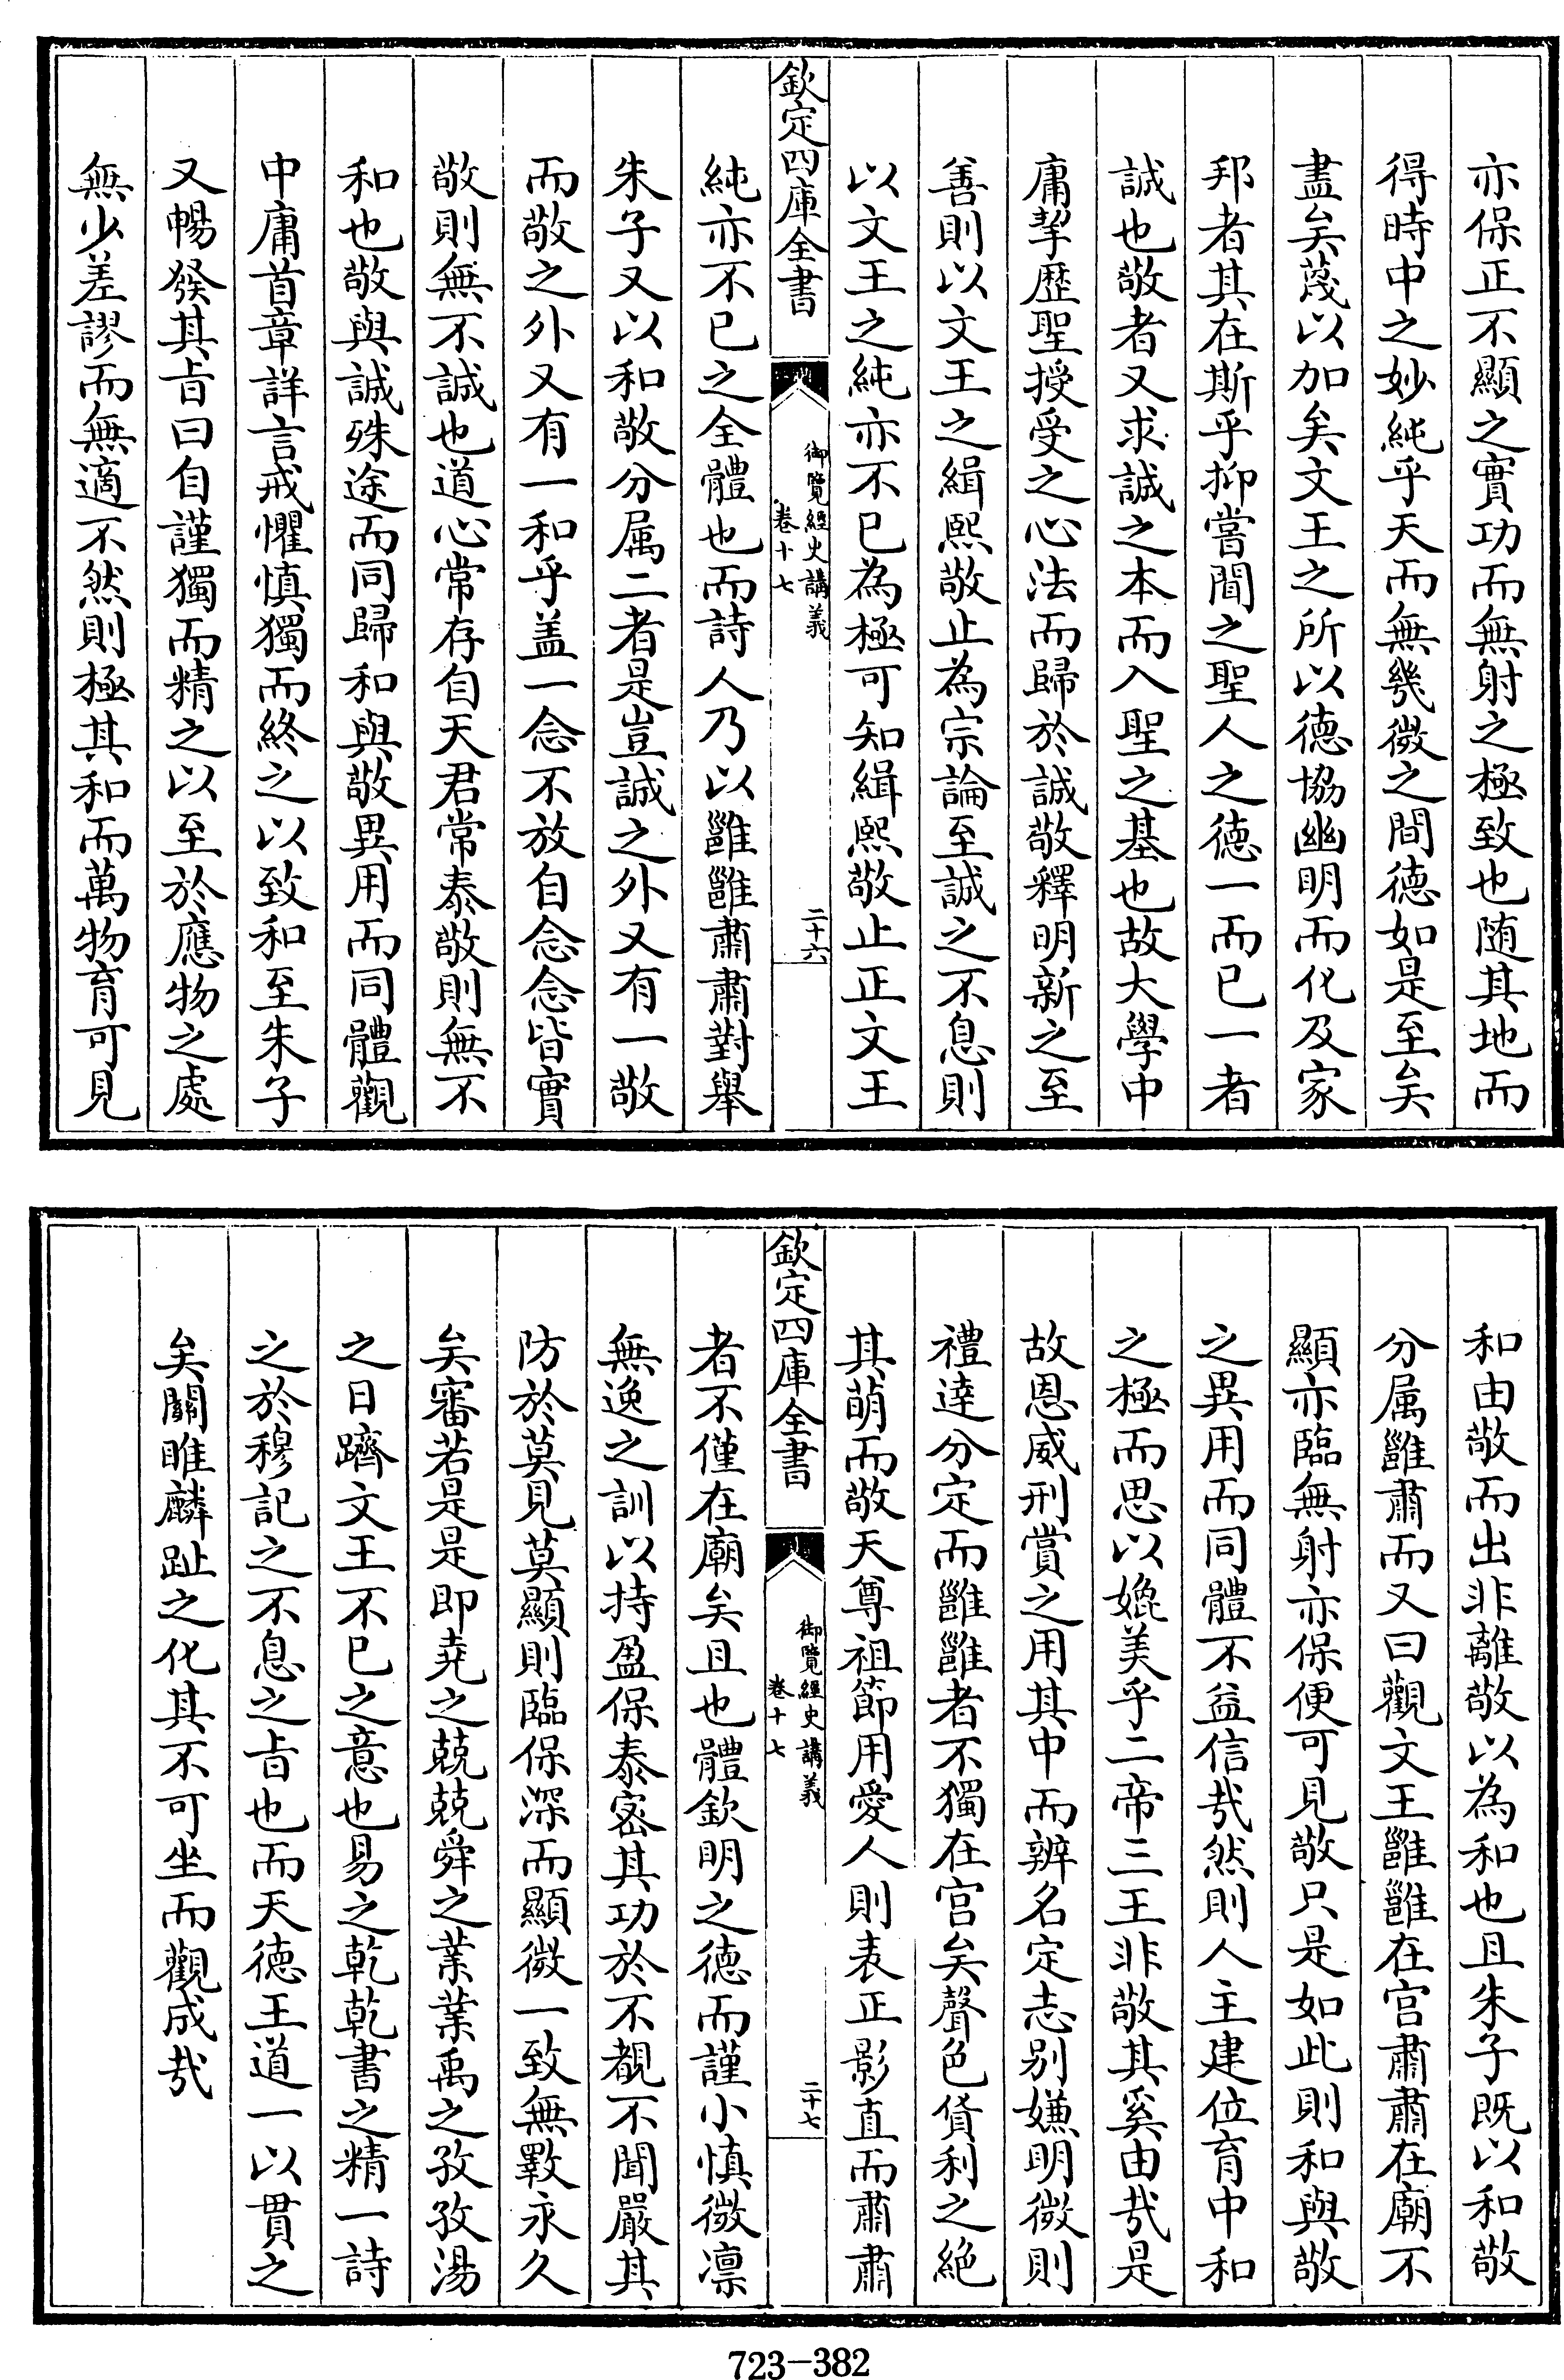 亦保正不顯之實功而無射之極致也随其地而
得時中之妙純乎天而無幾微之間德如是至矣
盡矣蔑以加矣文王之所以德協幽明而化及家
邦者其在斯乎抑嘗聞之聖人之德一而已一者
誠也敬者又求誠之本而入聖之基也故大學中
庸挈歷聖授受之心法而歸於誠敬釋明新之至
善則以文王之緝熙敬止為宗論至誠之不息則
以文王之純亦不已為極可知緝熙敬止正文王
欽定四庫全書
御覽經史講義
卷十七
二十六
純亦不已之全體也而詩人乃以雝雝肅肅對舉
朱子又以和敬分属二者是豈誠之外又有一敬
而敬之外又有一和乎盖一念不放自念念皆實
敬則無不誠也道心常存自天君常泰敬則無不
和也敬與誠殊途而同歸和與敬異用而同體觀
中庸首章詳言戒懼慎獨而終之以致和至朱子
又暢發其旨曰自謹獨而精之以至於應物之處
無少差謬而無適不然則極其和而萬物育可見
和由敬而出非離敬以為和也且朱子既以和敬
分属雝肅而又曰觀文王雝雝在宫肅肅在廟不
顯亦臨無射亦保便可見敬只是如此則和與敬
之異用而同體不益信哉然則人主建位育中和
之極而思以媲美乎二帝三王非敬其奚由哉是
故恩威刑賞之用其中而辨名定志别嫌明微則
禮達分定而雝雝者不獨在宫矣聲色貨利之絶
其萌而敬天尊祖節用愛人則表正影直而肅肅
欽定四庫全書
御覽經史講義
卷十七
二十七
者不僅在廟矣且也體欽明之德而謹小慎微凛
無逸之訓以持盈保泰密其功於不覩不聞嚴其
防於莫見莫顯則臨保深而顯微一致無斁永久
矣審若是是即堯之兢兢舜之業業禹之孜孜湯
之日躋文王不已之意也易之乾乾書之精一詩
之於穆記之不息之旨也而天德王道一以貫之
矣關雎麟趾之化其不可坐而觀成哉
723-382